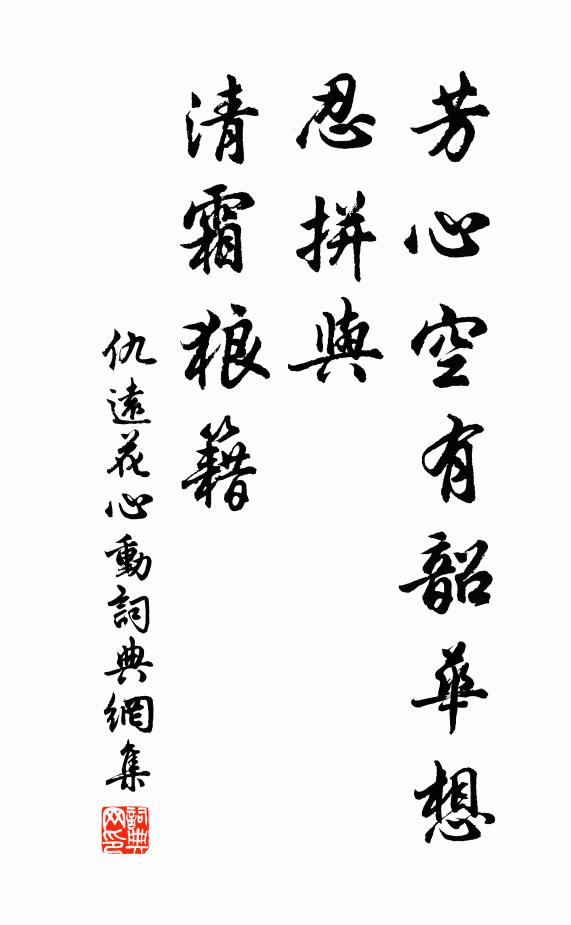 芳心空有韶華想
忍拼與
清霜狼籍
仇遠花心動詞典網集
詞典
网印